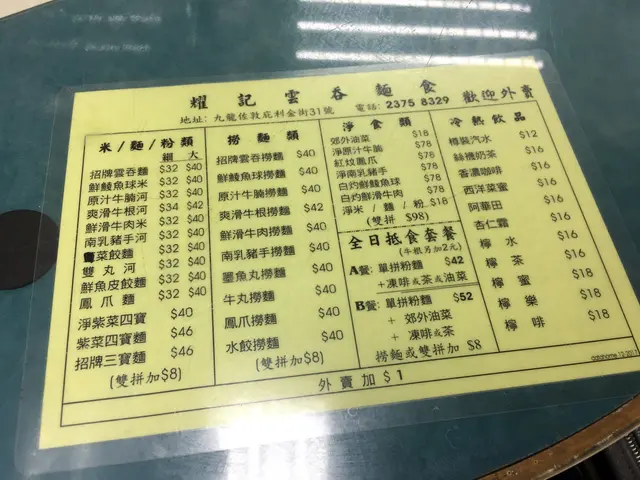 耀記雲吞麵食
地址: 九龍佐敦庇利金街31號 電話: 2375 8329 歡迎外賣
米/麵/粉類
細 大
招牌雲吞麵 $32 $40
鮮鯪魚球米 $32 $40
原汁牛腩河 $32 $40
爽滑牛根河 $34 $42
鮮滑牛肉米 $32 $40
南乳豬手河 $32 $40
菜餃麵 $32 $40
雙丸河 $32 $40
鮮魚皮餃麵 $32 $40
鳳爪麵 $32 $40
淨紫菜四寶 $40
紫菜四寶麵 $46
招牌三寶麵 $46
(雙拼加$8)
撈麵類
招牌雲吞撈麵 $40
鮮鯪魚球撈麵 $40
原汁牛腩撈麵 $40
爽滑牛根撈麵 $42
鮮滑牛肉撈麵 $40
南乳豬手撈麵 $40
墨魚丸撈麵 $40
牛丸撈麵 $40
鳳爪撈麵 $40
水餃撈麵 $40
(雙拼加$8)
淨食類
郊外油菜 $18
淨原汁牛腩 $78
紅炆鳳爪 $78
淨南乳豬手 $78
白灼鯪魚球 $78
白灼鮮滑牛肉 $78
淨米/麵/粉 $18
(雙拼 $98)
全日抵食套餐
(牛根另加2元)
A餐: 單拼粉麵 $42
+ 凍啡或茶/或油菜
B餐: 單拼粉麵 $52
+ 郊外油菜
+ 凍啡或茶
撈麵或雙拼加 $8
冷熱飲品
樽裝汽水 $12
絲襪奶茶 $16
香濃咖啡 $16
西洋菜蜜 $16
阿華田 $16
杏仁霜 $16
檸水 $16
檸茶 $16
檸蜜 $18
檸樂 $18
檸啡 $18
外賣加 $1